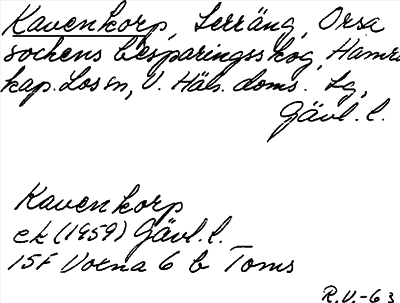 Kavenkorp, Serräng, Orsa
sockens besparingsskog, Hamra
kap. Lossn, V. Häls. doms. Lg,
Gävl. l.
Kavenkorp
ek (1959) Gävl. l.
15F Voxna 6 b Toms
R.V.-63